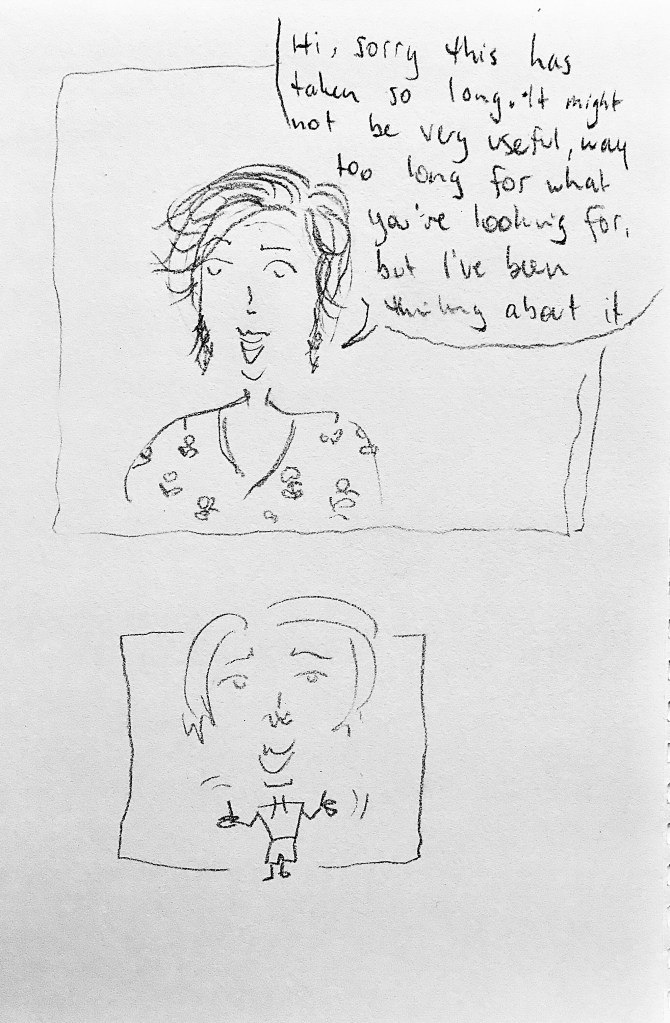 Hi, sorry this has
taken so long. It might
not be very useful, way
too long for what
you're looking for,
but I've been
thinking about it